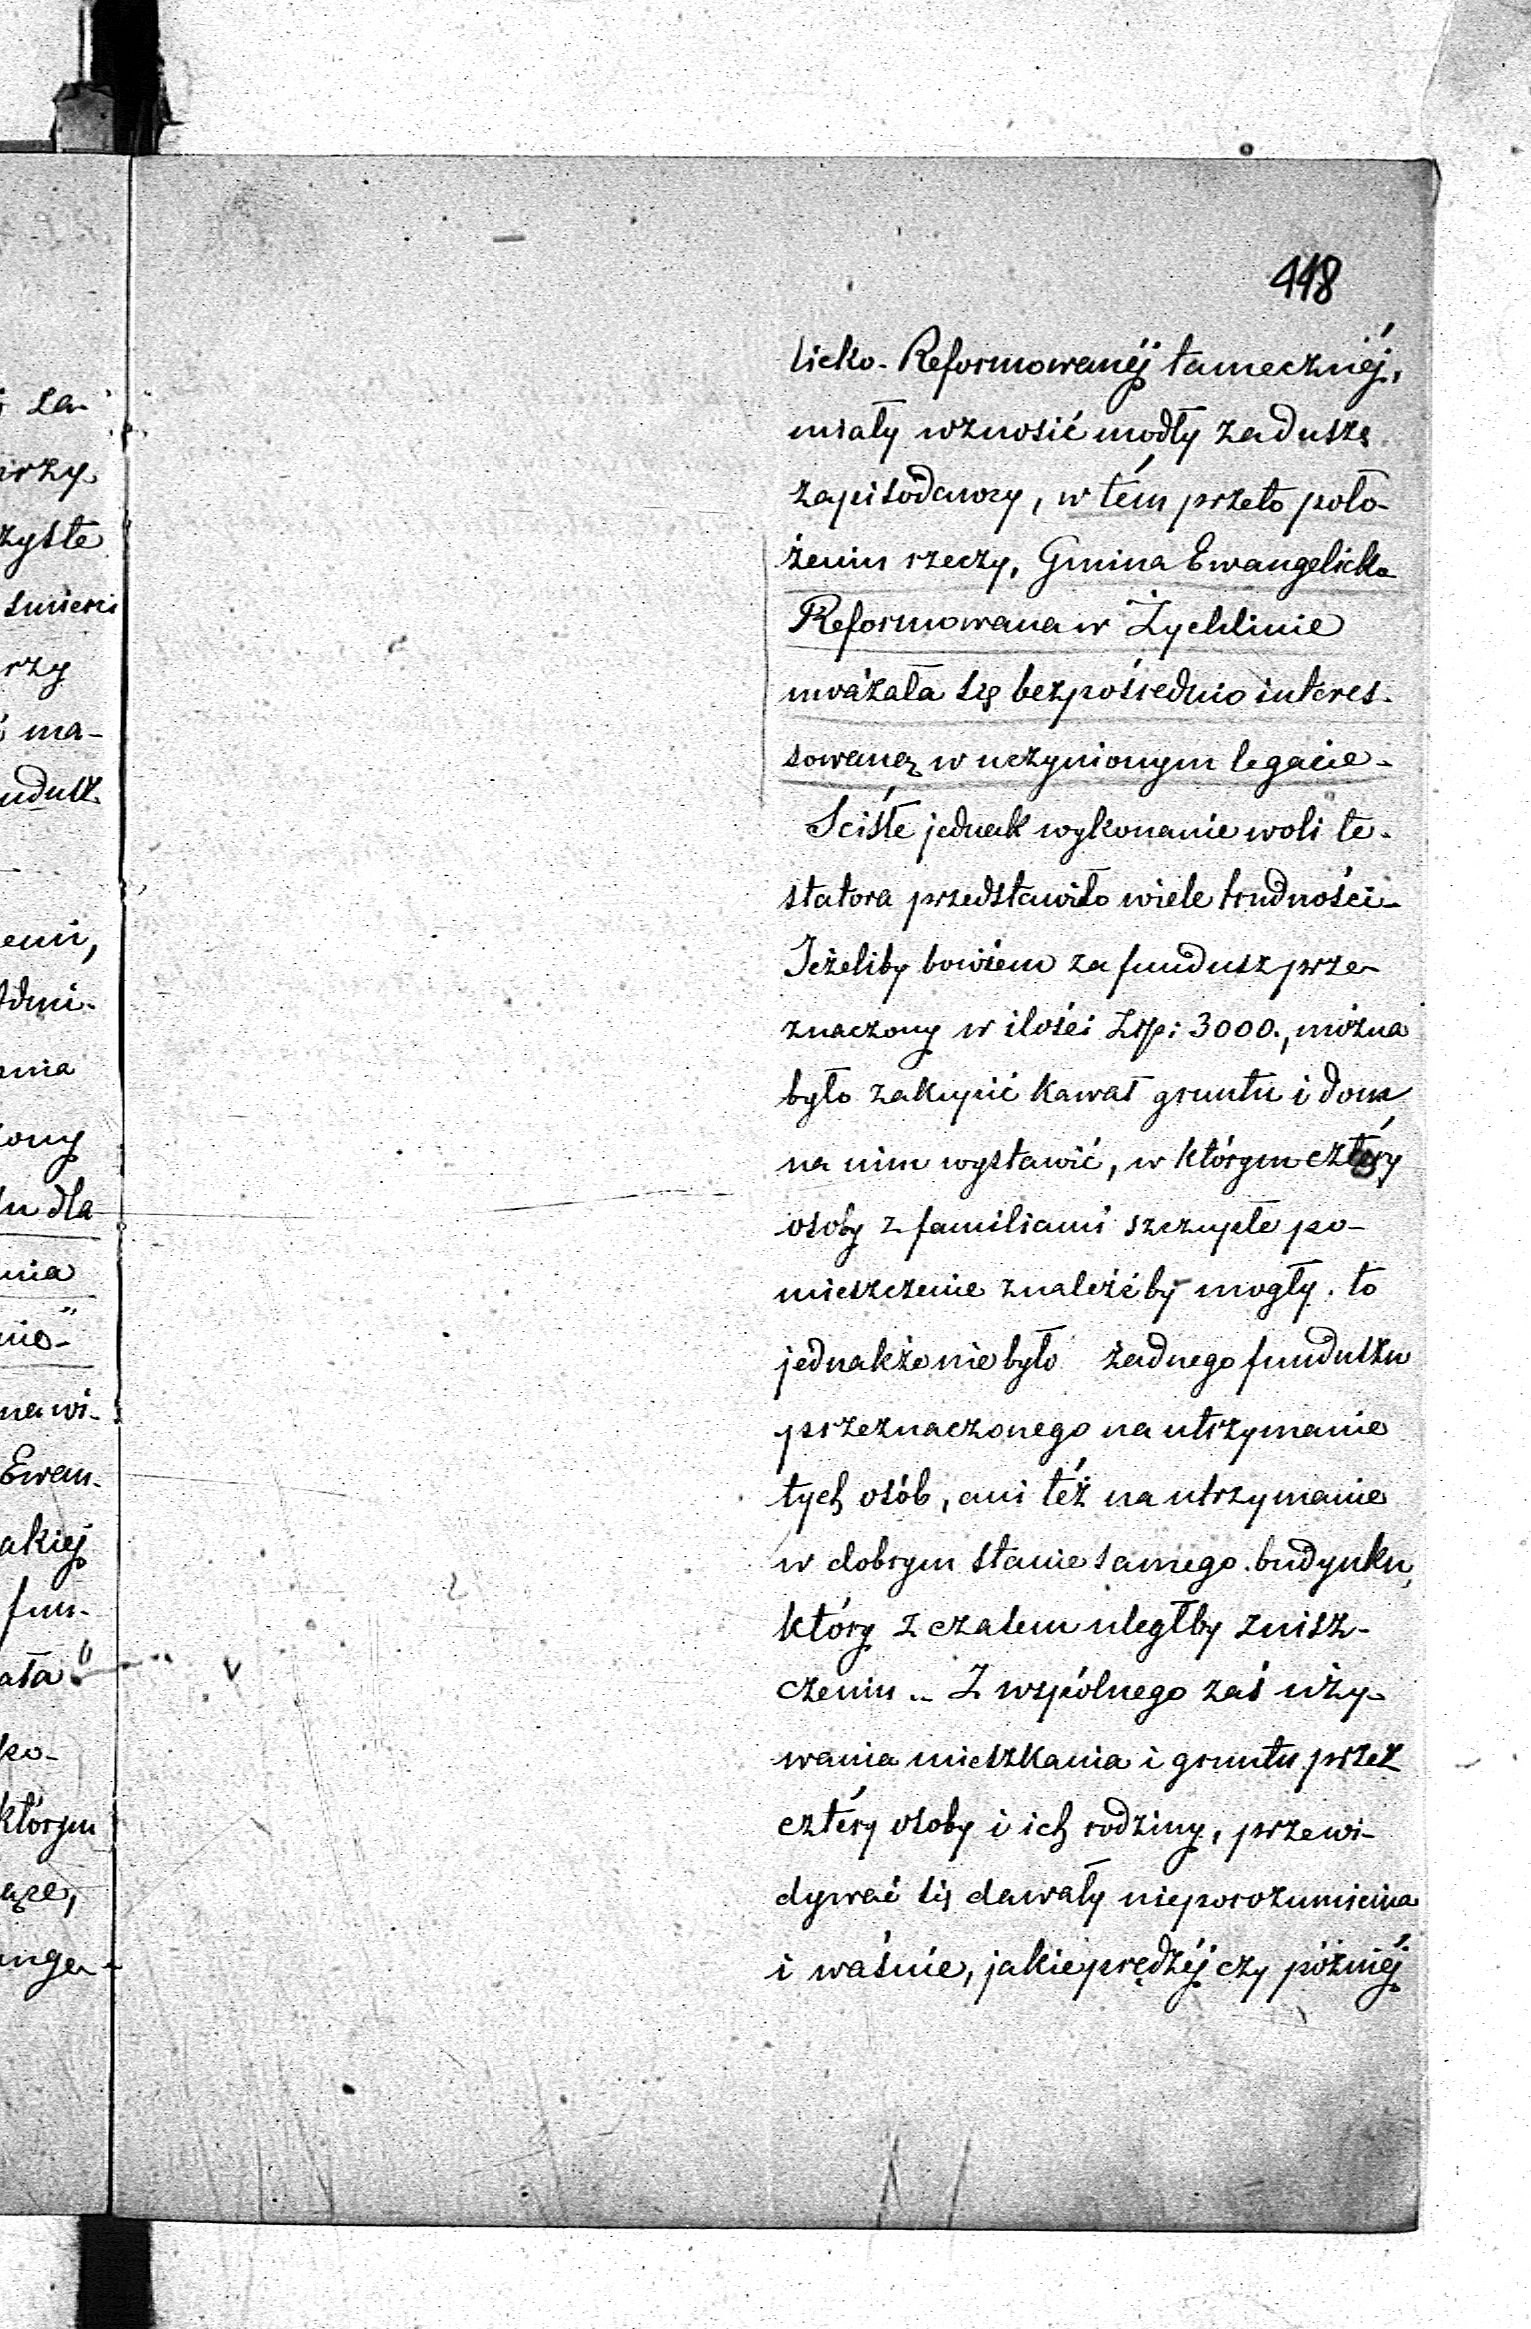 118
licko-Reformowanéj tamecznéj,
miały wznosić modły za duszę
zapisodawcy, w tém przeto poło-
żeniu rzeczy, Gmina Ewangelicko
Reformowana w Żychlinie
uważała się bezpośrednio interes-
sowaną w uczynionym legacie.
Sciśłe jednak wykonanie woli te-
statora przedstawiło wiele trudności.
Jeżeliby bowiem za fundusz prze-
znaczony w ilości Złp: 3000., można
było zakupić kawał gruntu i dom
na nim wystawić, w którym cztéry
osoby z familiami szczupłe po-
mieszczenie znaleźćby mogły. to
jednakże nie było żadnego funduszu
przeznaczonego na utrzymanie
tych osób, ani téż na utrzymanie
w dobrym stanie samego budynku,
który z czasem uległby znisz-
czeniu.. Z wspólnego zaś uży-
wania mieszkania i gruntu przez
cztéry osoby i ich rodziny, przewi-
dywać się dawały nieporozumienia
i waśnie, jakie prędzéj czy późniéj
irzy
zyste
smierci
rzy
ma-
udusz
eniu,
ony
dla
nia
nie"
na wi-
Ewan-
akiej
fun-
ała"
ko-
którym